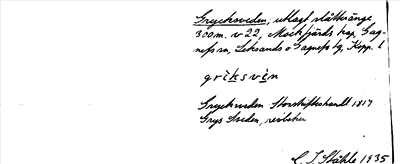 Grycksveden, utlagt slåttesänge
300m. v 22, Mockfjärds kap, Gag-
nefs sn, Leksands o Gagnefs tg, Kopp. l
griksvèn
Gryckveden Storskifteshandl 1817
Grys Sveden,
C. I. Ståhle 1935